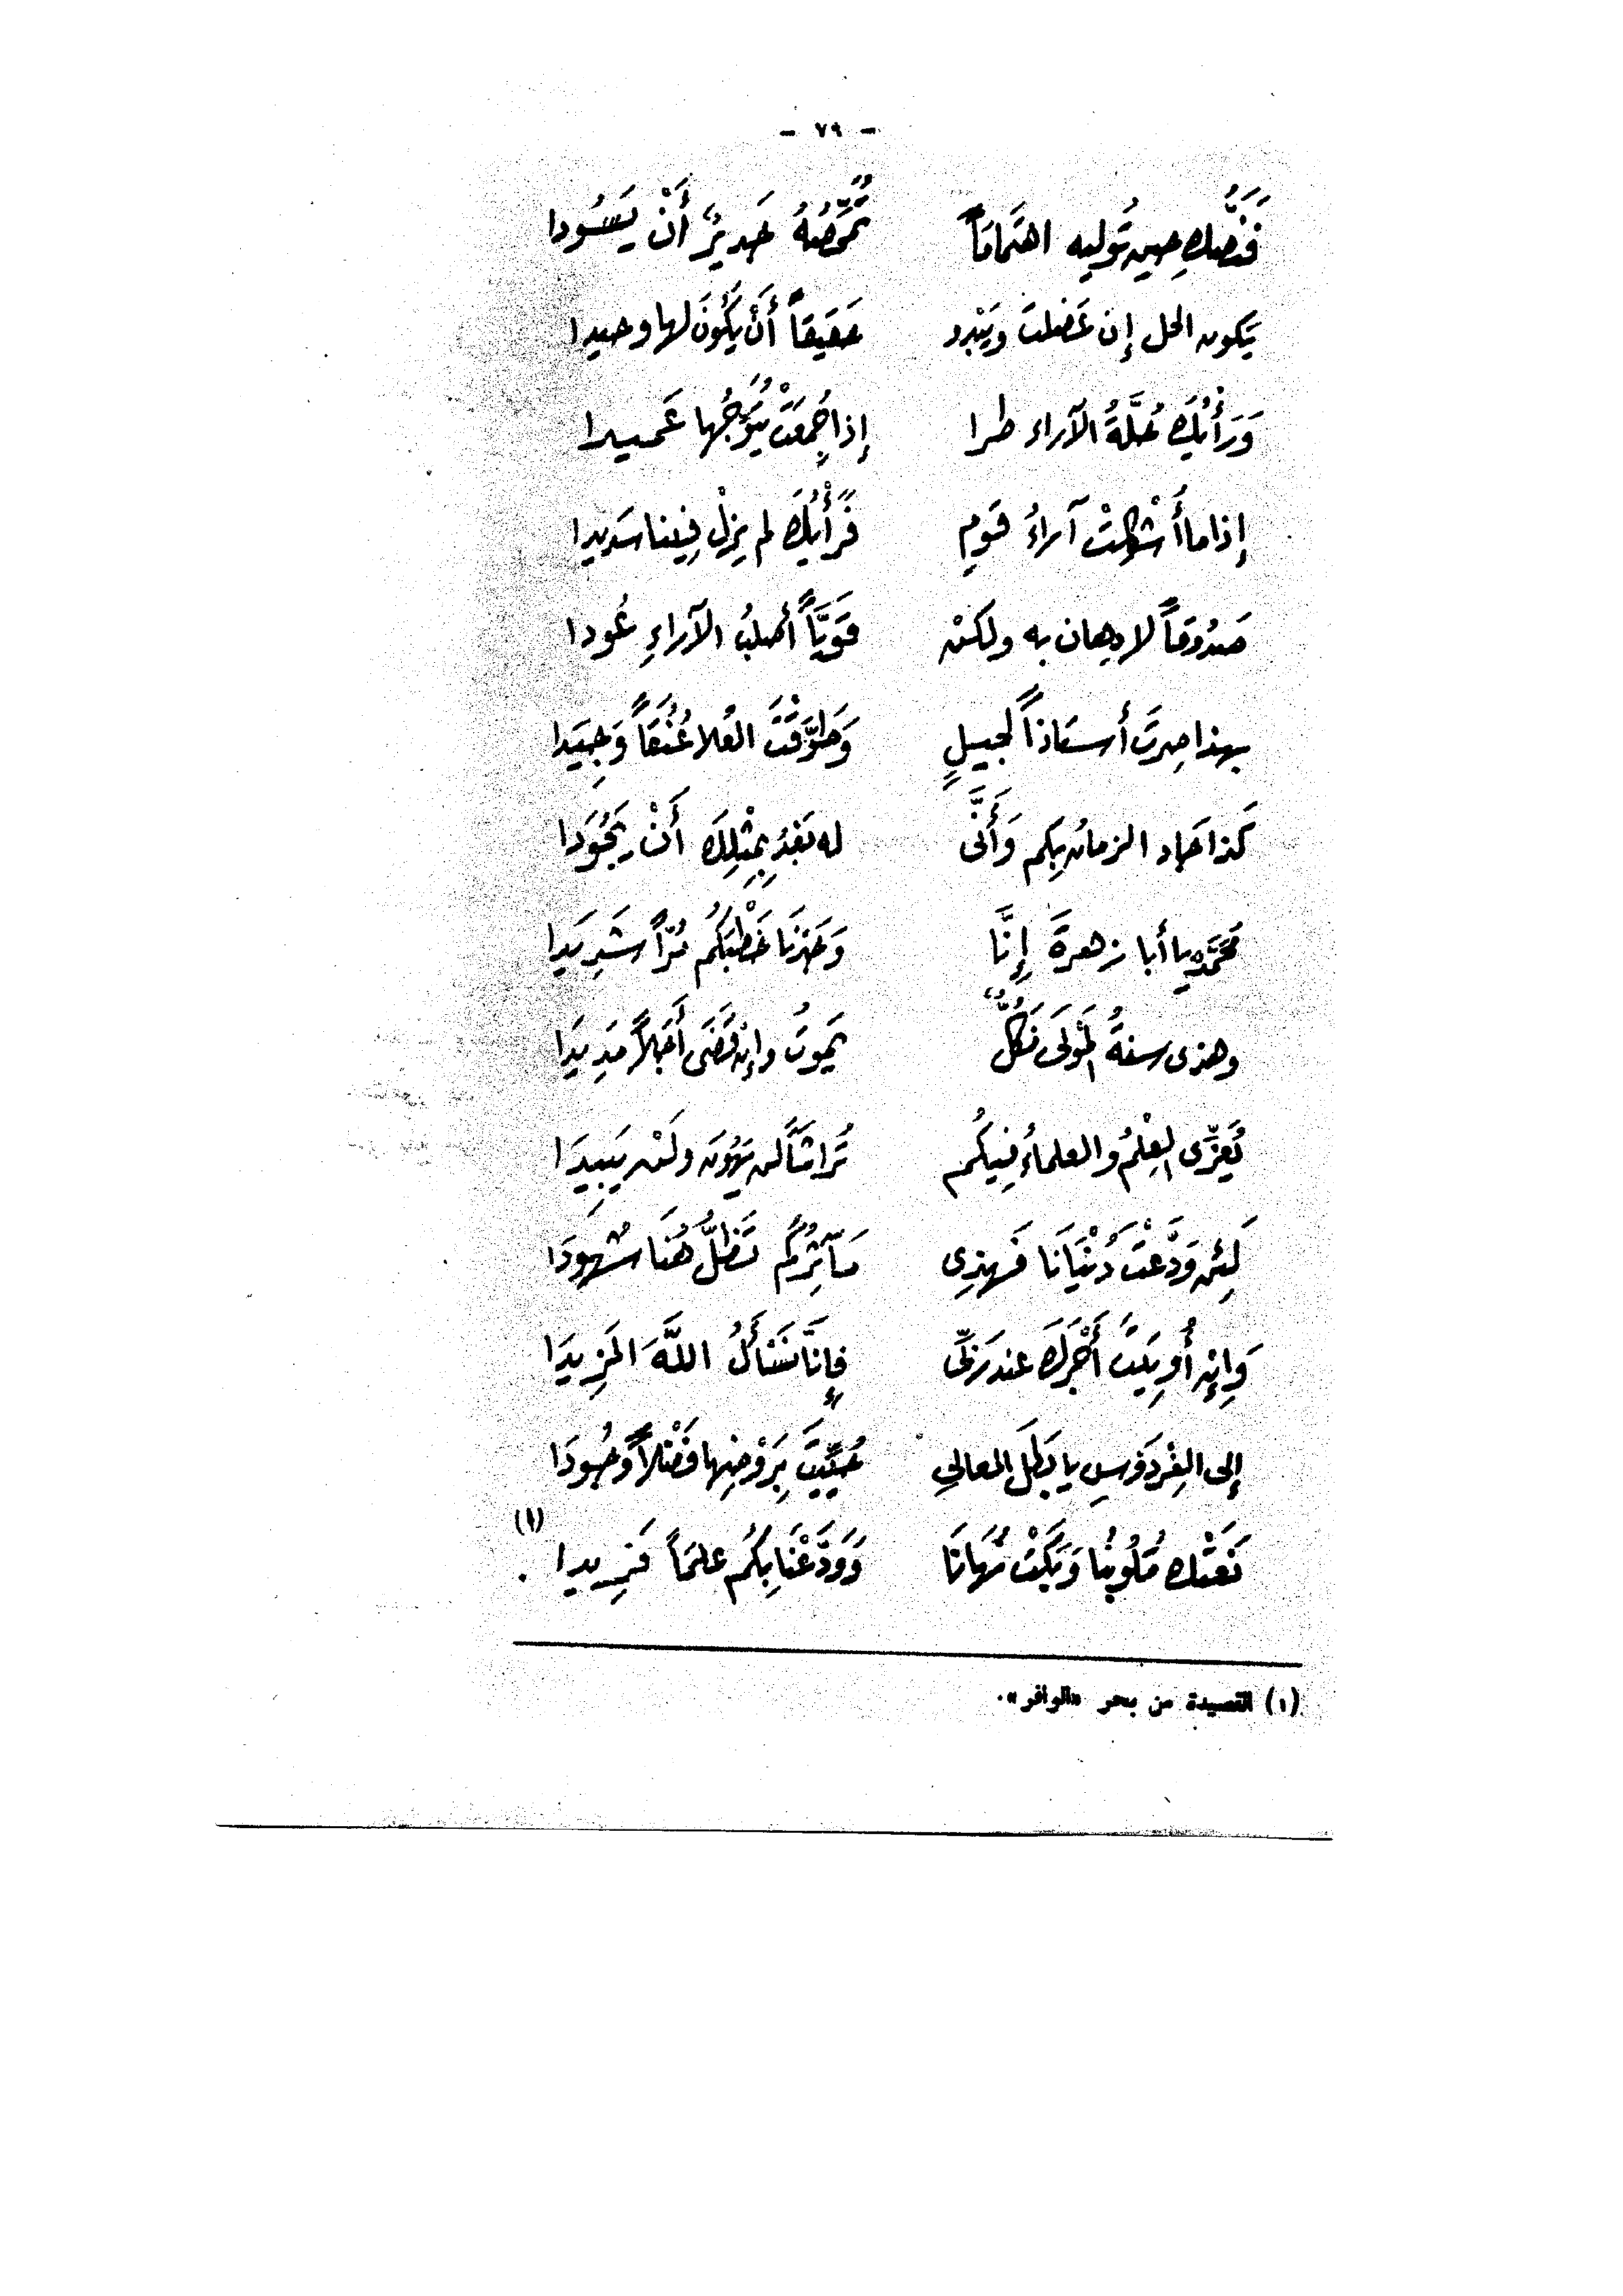 - ٧٩ -
فَنَصُّك حين تُوليه اهتماماً تُمَحِّصُهُ جَديرٌ أَنْ يَسُودا
يَكون الحل إن عَضلت ويَبْدو حَقيقاً أَنْ يَكُونَ لها وحيدا
وَرَأْيُكَ عُلَّةُ الآراء طرا إذا جُمِعَتْ يُتَوِّجُها عَميدا
إذا ما أَشْكلتْ آراءُ قومٍ فَرَأْيُكَ لم يزلْ فِينا سَديدا
صَدُوقاً لا دِهان به ولكنْ قَويًّا أَصلبُ الآراءِ عُودا
بهذا صِرتَ أستاذاً لجيلٍ وَطوَّقْتَ العُلا عُنُقاً وَجِيَدا
كَذا جَاد الزمانُ بِكم وَأَنَّى له بَعْدُ بِمِثْلِكَ أَنْ يَجُوَدا
مُحَمَّدُ يا أبا زهرةَ إِنَّا وَجَدْنَا خَطْبَكُم مُرّاً شَدِيَدا
وهذى سنةُ المَوْلَى فَكُلٌّ يَموتُ وإن قَضَى أَجَلاً مَدِيَدا
نُعَزِّى العِلْمَ والعلماءَ فِيكُم تُرَاثاً لن يَهُونَ ولَنْ يَبِيدَا
لَئِن وَدَّعْتَ دُنْيَانَا فَهذِى مَآثِرُكُم تَظَلُّ هُنَا شُهودَا
وَإِنْ أُوتِيتَ أَجْرَكَ عند رَبِّى فإِنَّا نَسْأَلُ اللَّهَ المَزِيدَا
إلى الفِرْدَوْسِ يا بَطَلَ المعالي حُبِيَّتَ بِرَوْضِها فَضْلاً وَجُودَا
نَعَتْكَ قُلُوبُنا وَبَكَتْ نُهَانَا وَوَدَّعْنَا بِكُم عَلَمَاً فَرِيدا . (١)
(١) القصيدة من بحر «الوافر».